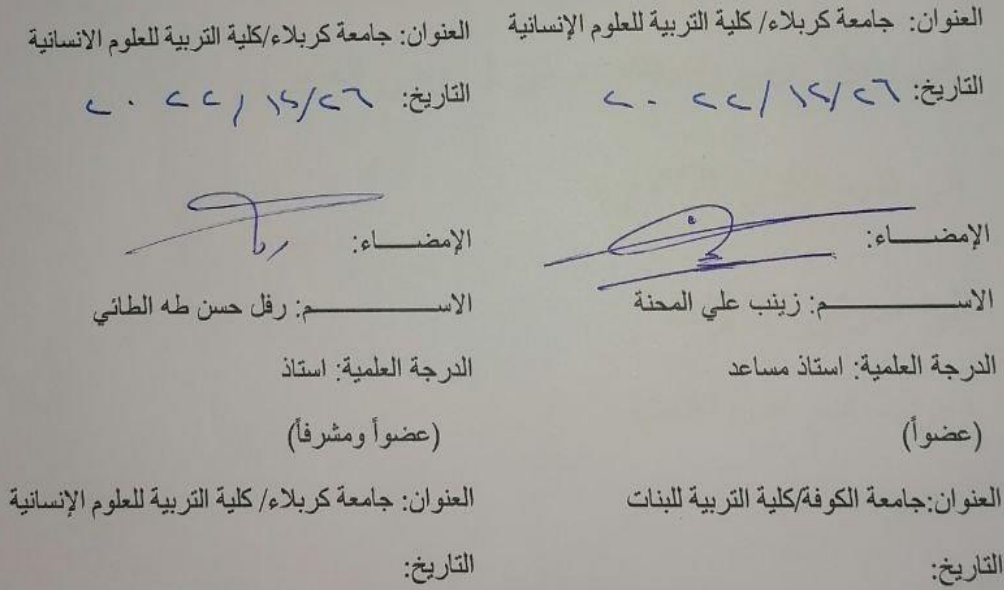 العنوان: جامعة كربلاء/ كلية التربية للعلوم الإنسانية
التاريخ: ٢٦/١٢/٢٠٢٢
الإمضـــــاء:
الاســـــــــــــم: زينب علي المحنة
الدرجة العلمية: استاذ مساعد
(عضواً)
العنوان:جامعة الكوفة/كلية التربية للبنات
التاريخ:
العنوان: جامعة كربلاء/كلية التربية للعلوم الانسانية
التاريخ: ٢٦/١٢/٢٠٢٢
الإمضـــــاء:
الاســـــــــــــم: رفل حسن طه الطائي
الدرجة العلمية: استاذ
(عضواً ومشرفاً)
العنوان: جامعة كربلاء/ كلية التربية للعلوم الإنسانية
التاريخ: